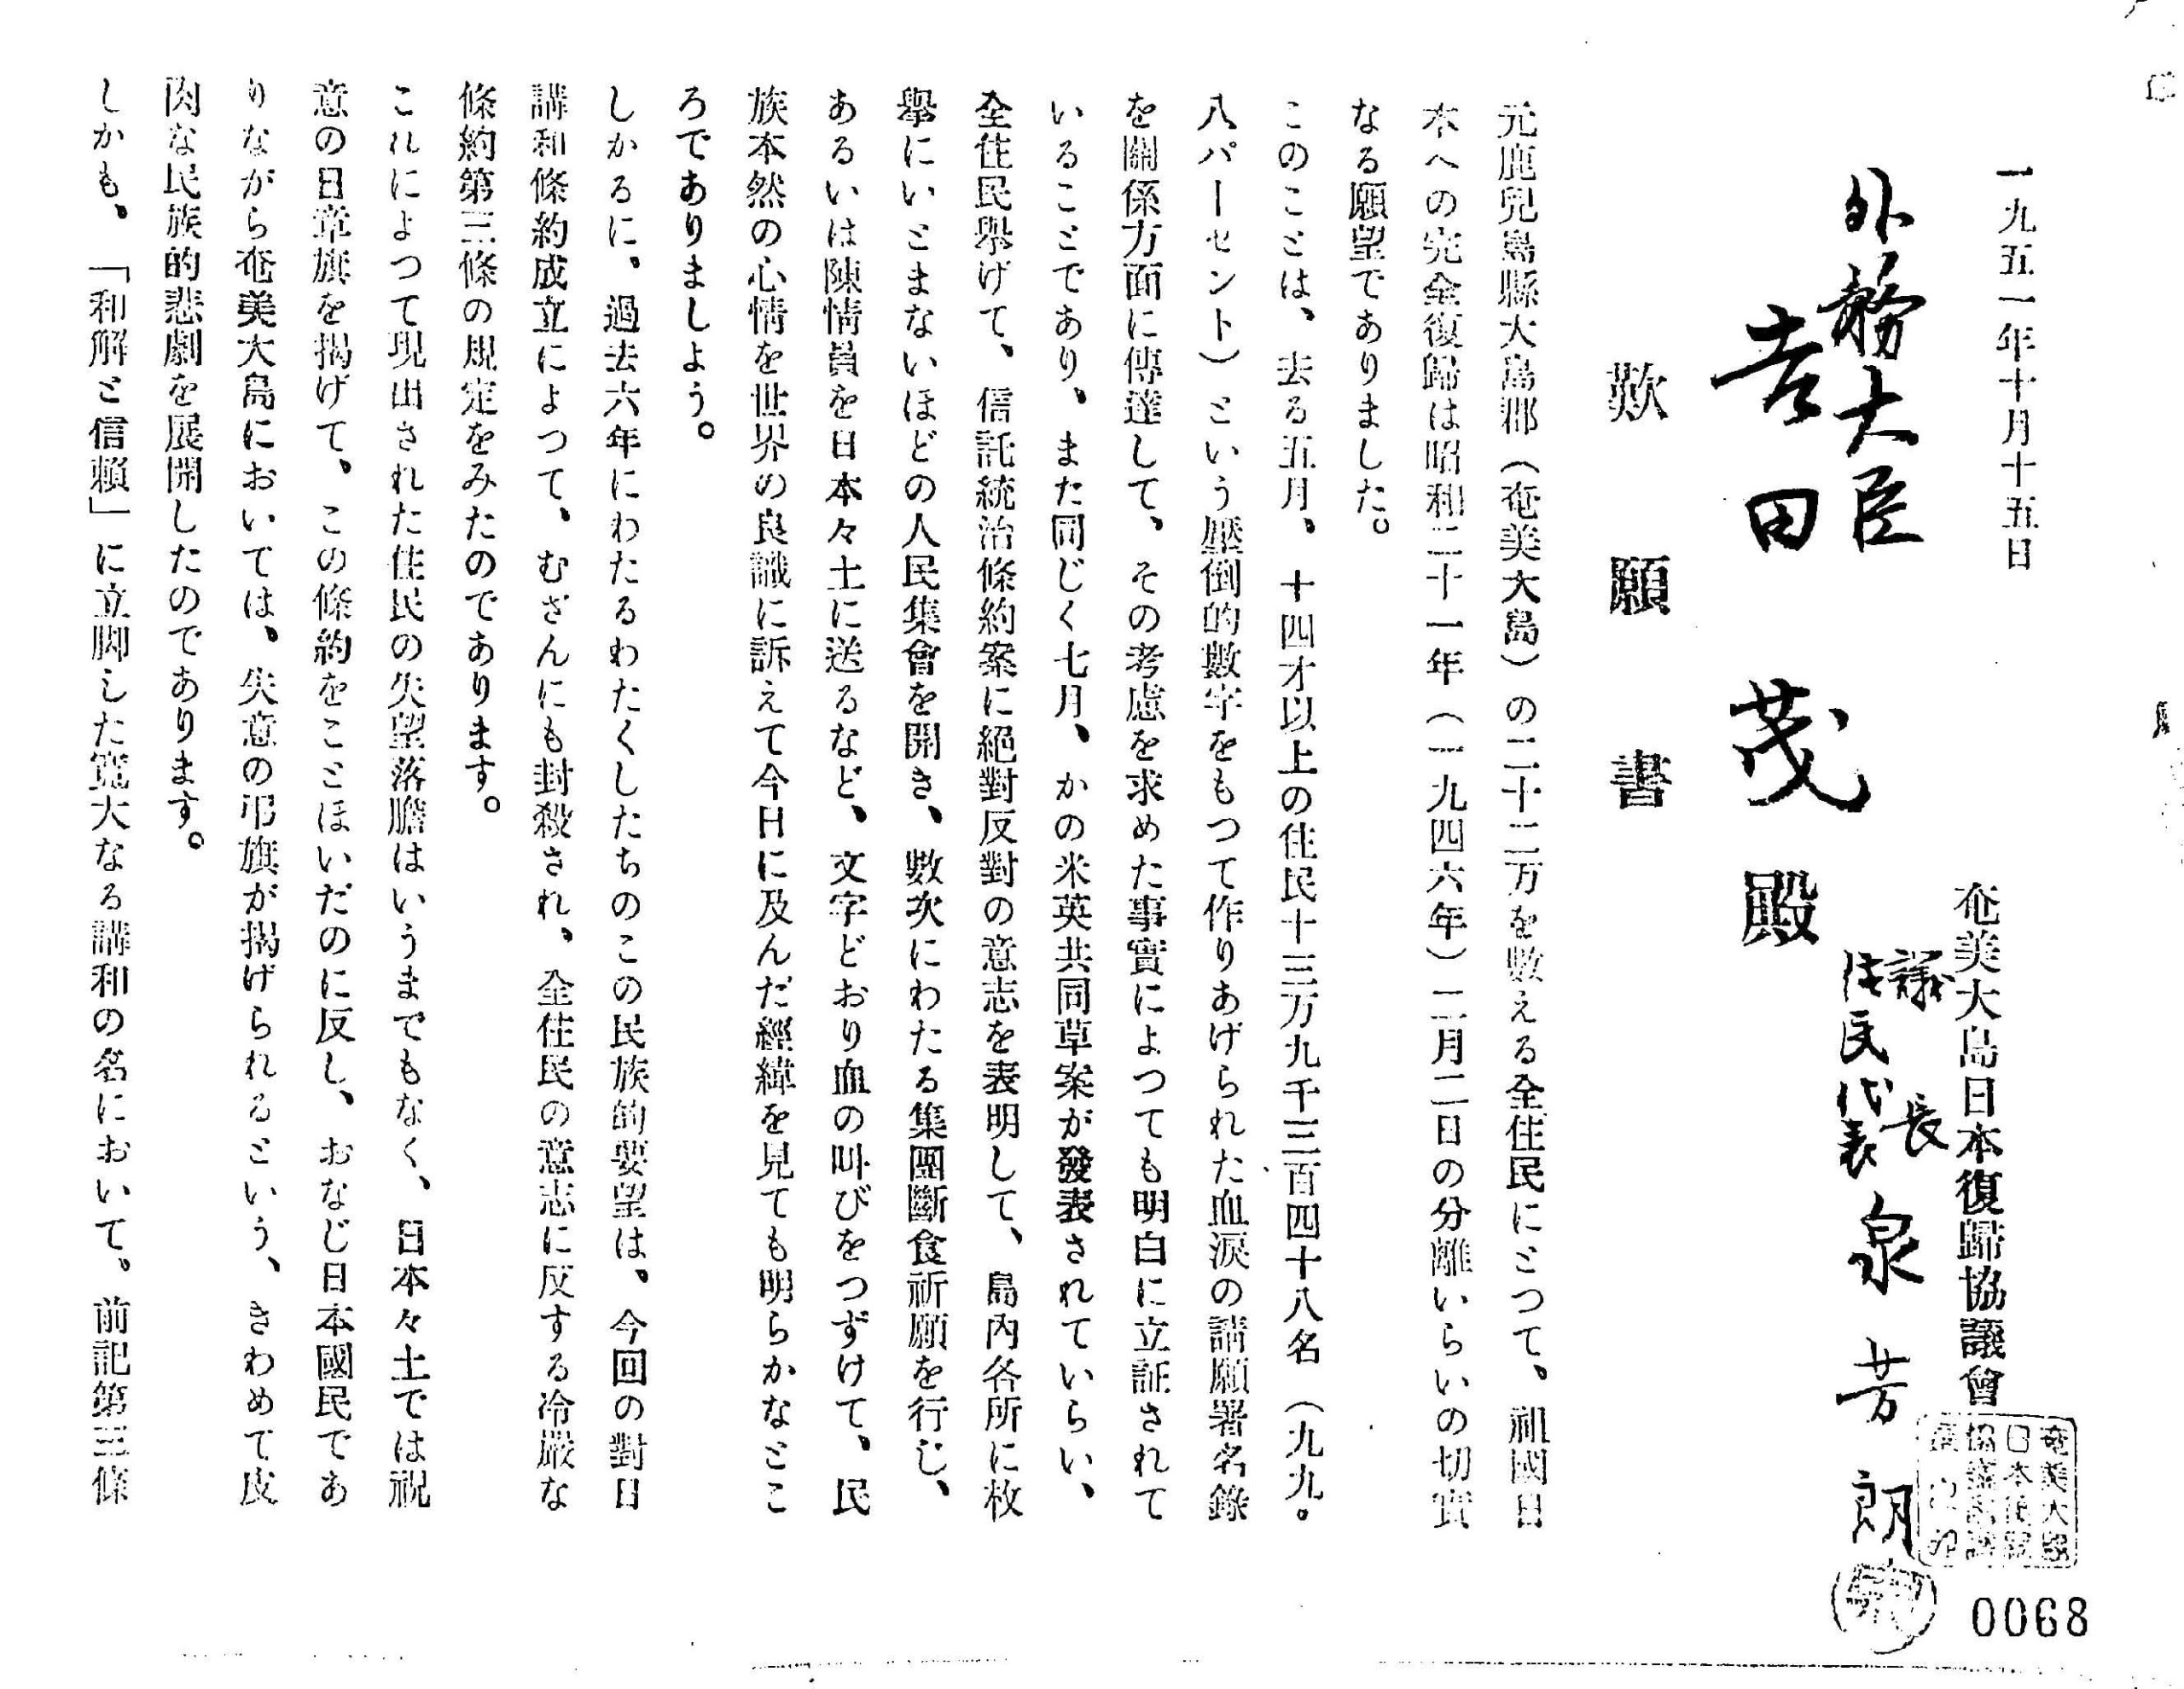 一九五一年十月十五日
奄美大島日本復歸協議會
議長
住民代表
泉芳朗
外務大臣
吉田茂殿
歎願書
元鹿兒島縣大島郡（奄美大島）の二十二万を數える全住民にとつて、祖國日
本への完全復歸は昭和二十一年（一九四六年）二月二日の分離いらいの切實
なる願望でありました。
このことは、去る五月、十四才以上の住民十三万九千三百四十八名（九九。
八パーセント）という壓倒的數字をもつて作りあげられた血涙の請願署名錄
を關係方面に傳達して、その考慮を求めた事實によつても明白に立証されて
いることであり、また同じく七月、かの米英共同草案が發表されていらい、
全住民擧げて、信託統治條約案に絕對反對の意志を表明して、島內各所に枚
擧にいとまないほどの人民集會を開き、數次にわたる集團斷食祈願を行じ、
あるいは陳情員を日本々土に送るなど、文字どおり血の叫びをつずけて、民
族本然の心情を世界の良識に訴えて今日に及んだ經緯を見ても明らかなとこ
ろでありましよう。
しかるに、過去六年にわたるわたくしたちのこの民族的要望は、今回の對日
講和條約成立によつて、むざんにも封殺され、全住民の意志に反する冷嚴な
條約第三條の規定をみたのであります。
これによつて現出された住民の失望落膽はいうまでもなく、日本々土では祝
意の日章旗を揭げて、この條約をことほいだのに反し、おなじ日本國民であ
りながら奄美大島においては、失意の弔旗が揭げられるという、きわめて皮
肉な民族的悲劇を展開したのであります。
しかも、「和解と信賴」に立脚した寬大なる講和の名において、前記第三條
0068